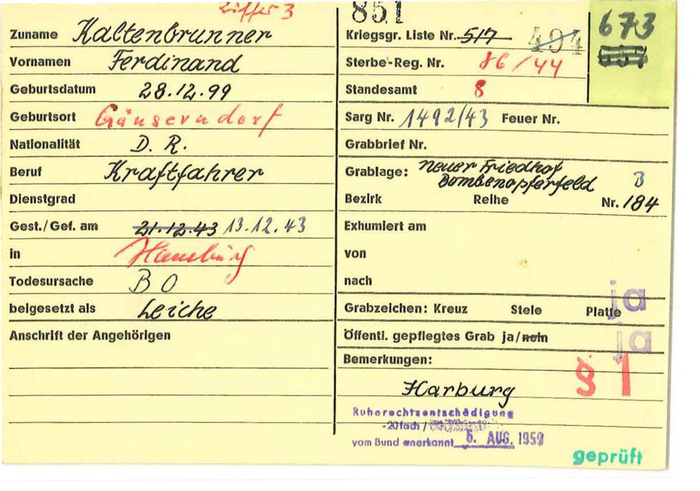 Ziffer 3
Zuname Kaltenbrunner
Vornamen Ferdinand
Geburtsdatum 28.12.99
Geburtsort Gänserndorf
Nationalität D. R.
Beruf Kraftfahrer
Dienstgrad
Gest./Gef. am 21.12.43 13.12.43
in Hamburg
Todesursache BO
beigesetzt als Leiche
Anschrift der Angehörigen
851
Kriegsgr. Liste Nr. 517 494
673
Sterbe-Reg. Nr. 86/44
Standesamt 8
Sarg Nr. 1492/43 Feuer Nr.
Grabbrief Nr.
Grablage: neuer Friedhof
Bombenopferfeld 3
Bezirk Reihe Nr. 184
Exhumiert am
von
nach
Grabzeichen: Kreuz Stele Platte ja
Öffentl. gepflegtes Grab ja/nein ja
Bemerkungen: § 1
Harburg
Ruherechtsentschädigung
-20fach /
vom Bund anerkannt 6. AUG. 1959
geprüft